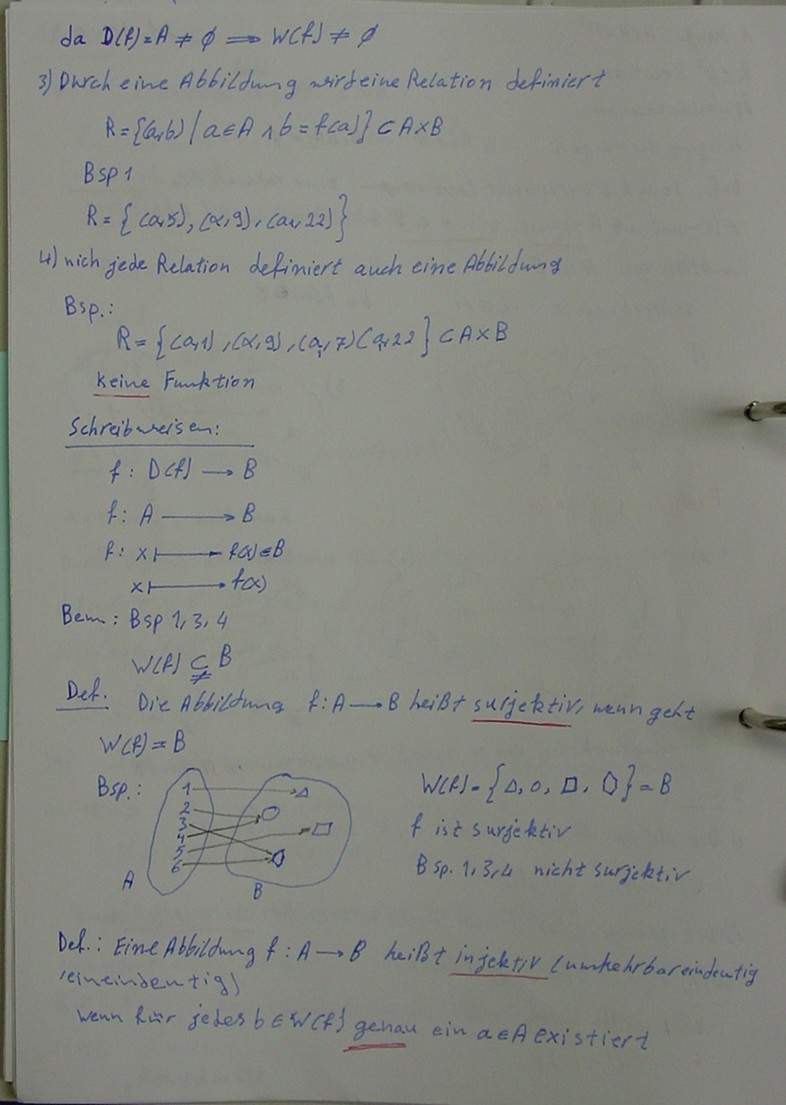 da D(f)=A ≠ ∅ ⟹ W(f) ≠ ∅
3) Durch eine Abbildung wird eine Relation definiert
R={(a,b) / a∈A ∧ b=f(a)} ⊂ A×B
Bsp 1
R={(a,5), (α,9), (a1,22)}
4) nich jede Relation definiert auch eine Abbildung
Bsp.:
R={(a,1), (α,9), (a1,7) (a1,22} ⊂ A×B
keine Funktion
Schreibweisen:
f: D(f) → B
f: A → B
f: x ↦ f(x)∈B
x ↦ f(x)
Bem.: Bsp 1,3,4
W(f) ⊊ B
Def. Die Abbildung f: A → B heißt surjektiv, wenn geht
W(f)=B
Bsp.:
1
2
3
4
5
6
A
B
W(f)={△, ○, □, ⬠}=B
f ist surjektiv
Bsp. 1,3,4 nicht surjektiv
Def.: Eine Abbildung f: A → B heißt injektiv (umkehrbar eindeutig
, eineindeutig)
wenn für jedes b∈W(f) genau ein a∈A existiert